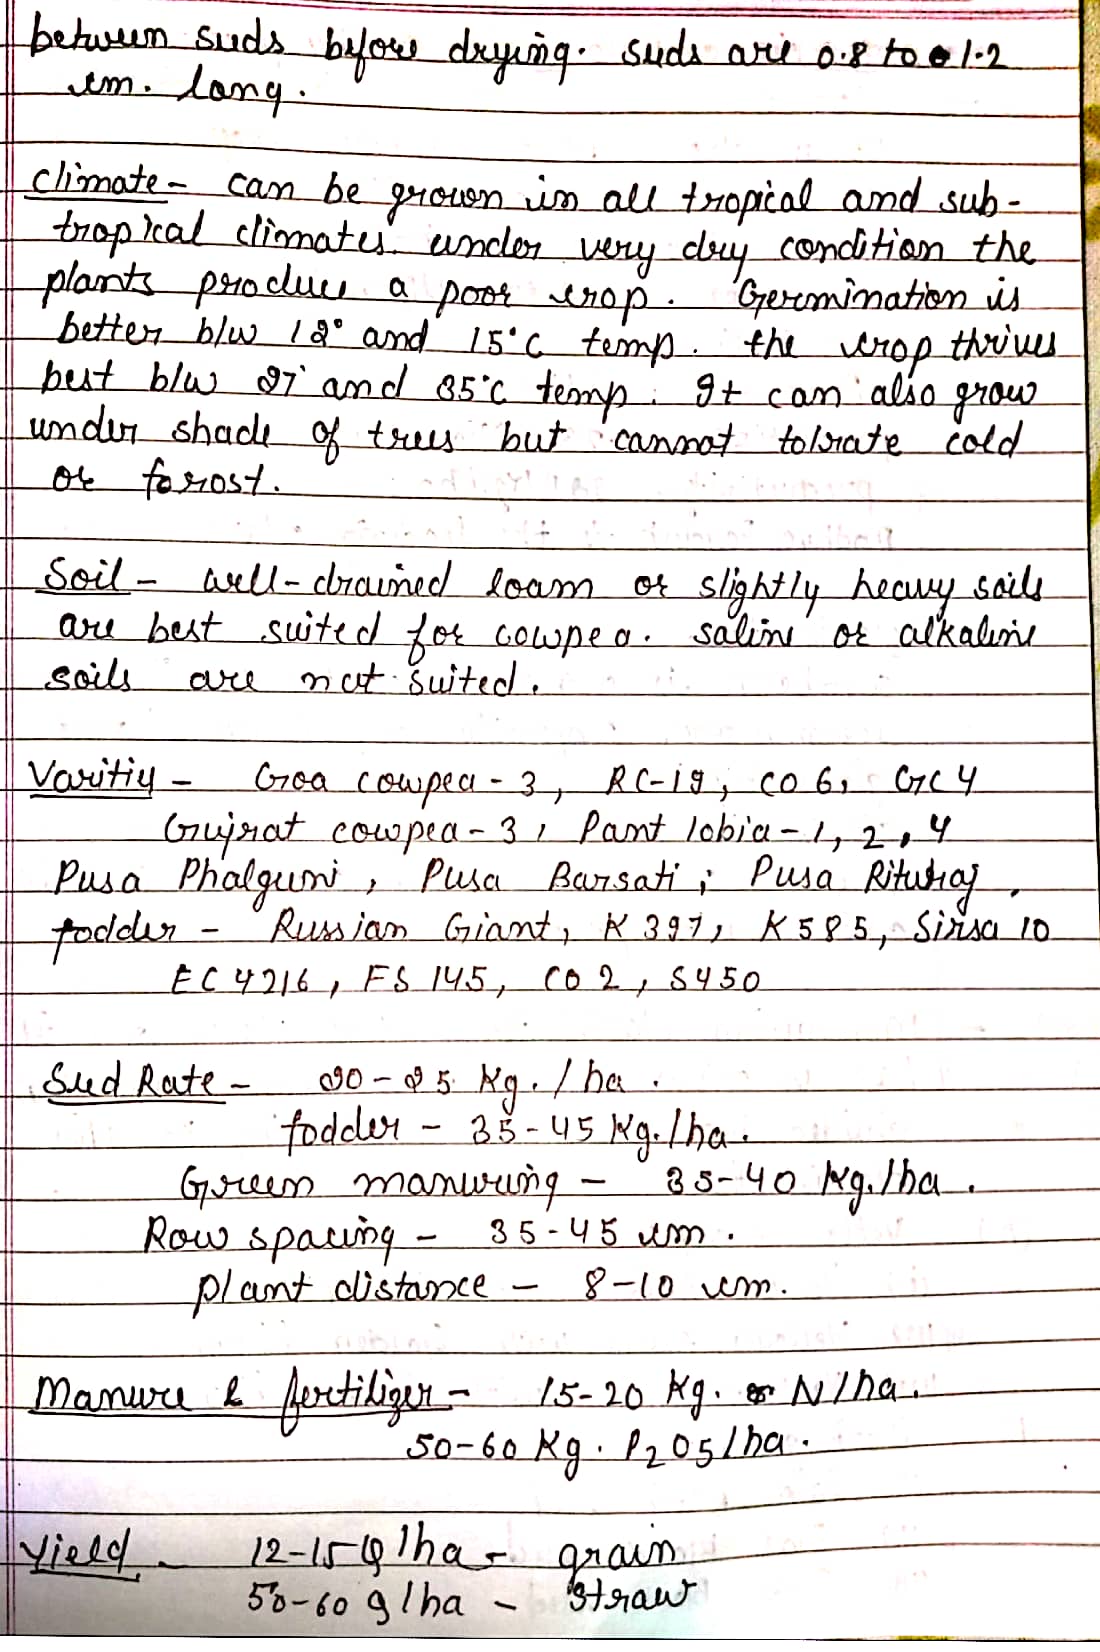 between seeds before drying. seeds are 0.8 to 1.2
cm. long.
Climate - can be grown in all tropical and sub-
tropical climates. under very dry condition the
plants produce a poor crop. Germination is
better b/w 12° and 15°C temp. the crop thrives
best b/w 27° and 35°C temp. It can also grow
under shade of trees but cannot tolrate cold
or forost.
Soil - well-drained loam or slightly heavy soils
are best suited for cowpea. saline or alkaline
soils are not suited.
Varitiy - Goa cowpea - 3, RC-19, CO 6, GC 4
Gujrat cowpea - 3, Pant lobia - 1, 2, 4
Pusa Phalguni, Pusa Barsati, Pusa Rituraj,
fodder - Russian Giant, K 397, K 585, Sirsa 10
EC 4216, FS 145, CO 2, S 450
Seed Rate - 20 - 25 Kg. / ha.
fodder - 35 - 45 Kg. / ha.
Green manuring - 35 - 40 Kg. / ha.
Row spacing - 35 - 45 cm.
plant distance - 8 - 10 cm.
Manure & fertilizer - 15 - 20 Kg. N / ha.
50 - 60 Kg. P2O5 / ha.
Yield - 12 - 15 Q / ha - grain
50 - 60 q / ha - straw